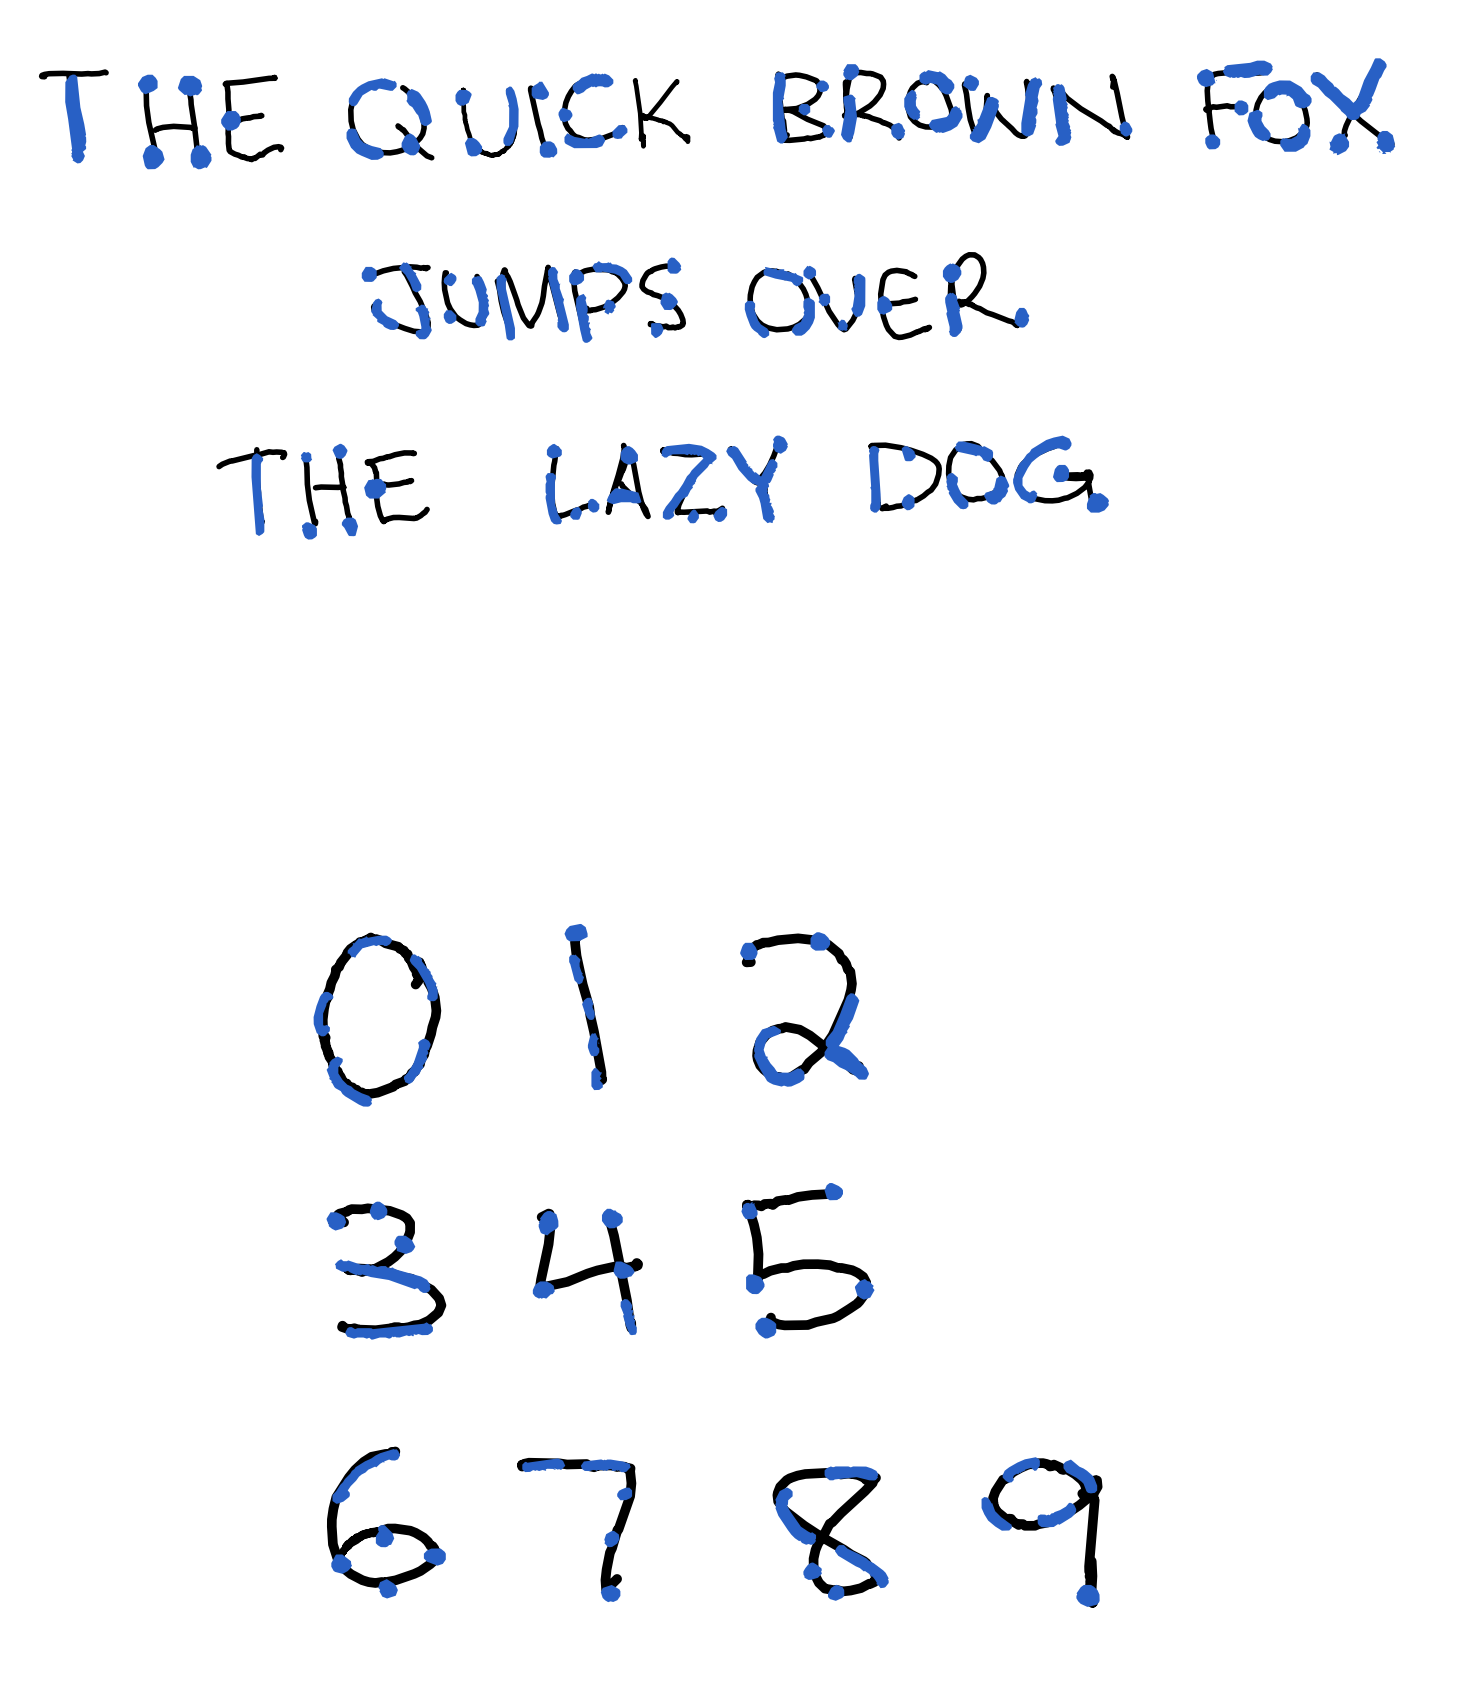 THE QUICK BROWN FOX
JUMPS OVER
THE LAZY DOG
0 1 2
3 4 5
6 7 8 9